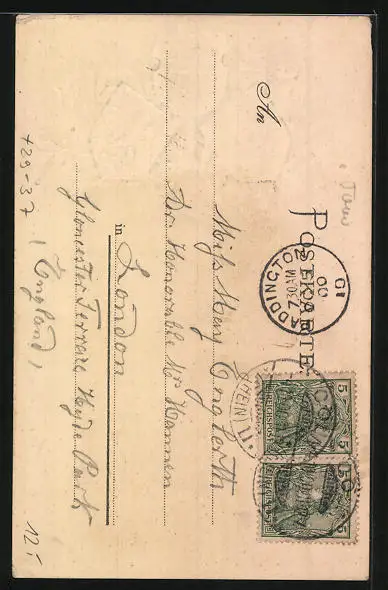 POSTKARTE
An
Miss Mary Englerth
Dr. Honorable Mr. Hannen
in London
Gloucester Terrace Hyde Park
(England)
PADDINGTON
7.30AM
00
5 5
REICHSPOST
5
CÖLN
(RHEIN)
429-37
12.-